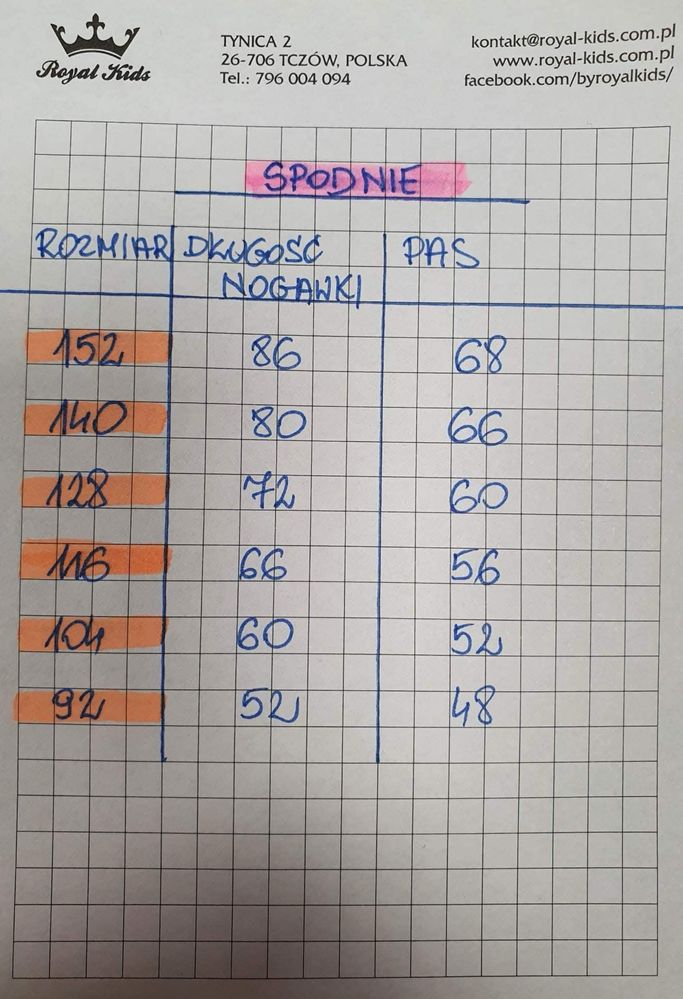 Royal Kids
TYNICA 2
26-706 TCZÓW, POLSKA
Tel.: 796 004 094
kontakt@royal-kids.com.pl
www.royal-kids.com.pl
facebook.com/byroyalkids/
SPODNIE
ROZMIAR DŁUGOŚĆ NOGAWKI PAS
152 86 68
140 80 66
128 72 60
116 66 56
104 60 52
92 52 48